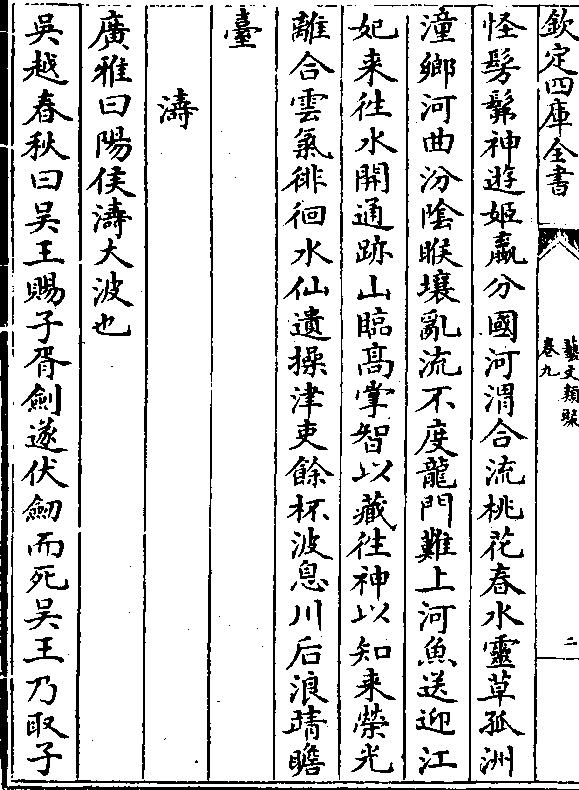 欽定四庫全書
藝文類聚
卷九
二
怪髣髴神遊姬嬴分國河渭合流桃花春水靈草孤洲
潼鄉河曲汾陰睺壤亂流不度龍門難上河魚送迎江
妃来徃水開通跡山臨髙掌智以藏徃神以知来榮光
離合雲氣徘徊水仙遺操津吏餘杯波息川后浪靖瞻
臺
濤
廣雅曰陽侯濤大波也
吳越春秋曰吳王賜子胥劍遂伏劒而死吳王乃取子